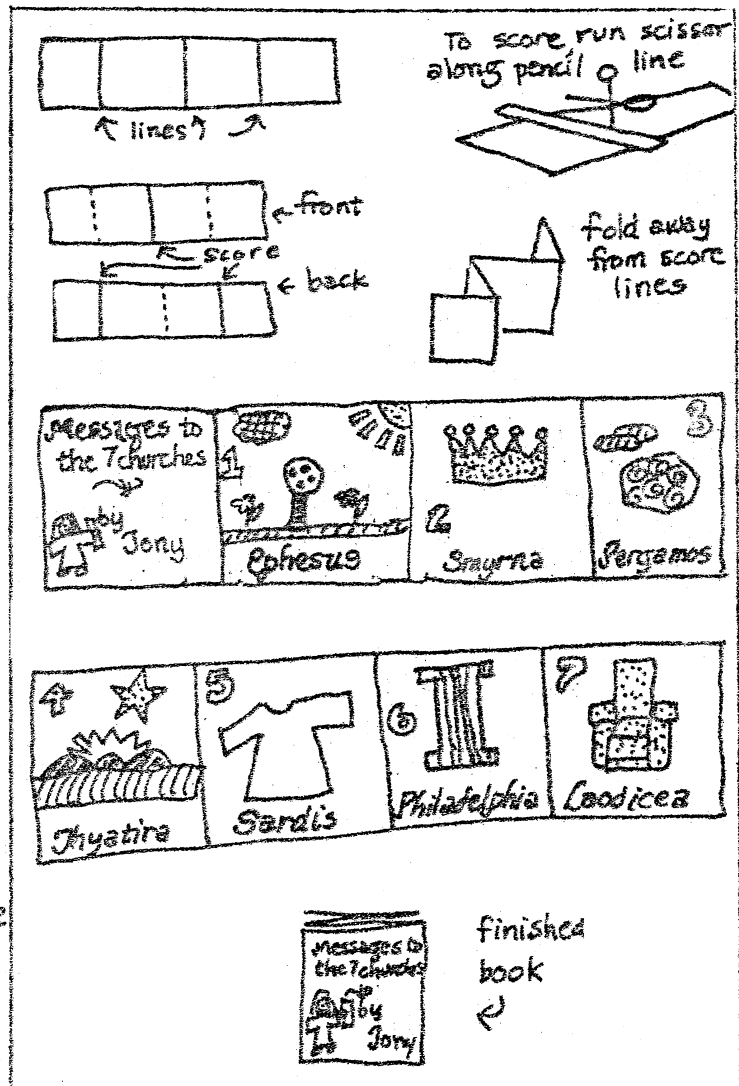 To score run scissor
along pencil line
lines
front
score
back
fold away
from score
lines
Messages to
the 7 churches
by
Jony
1
Ephesus
2
Smyrna
3
Pergamos
4
Thyatira
5
Sardis
6
Philadelphia
7
Laodicea
Messages to
the 7 churches
by
Jony
finished
book